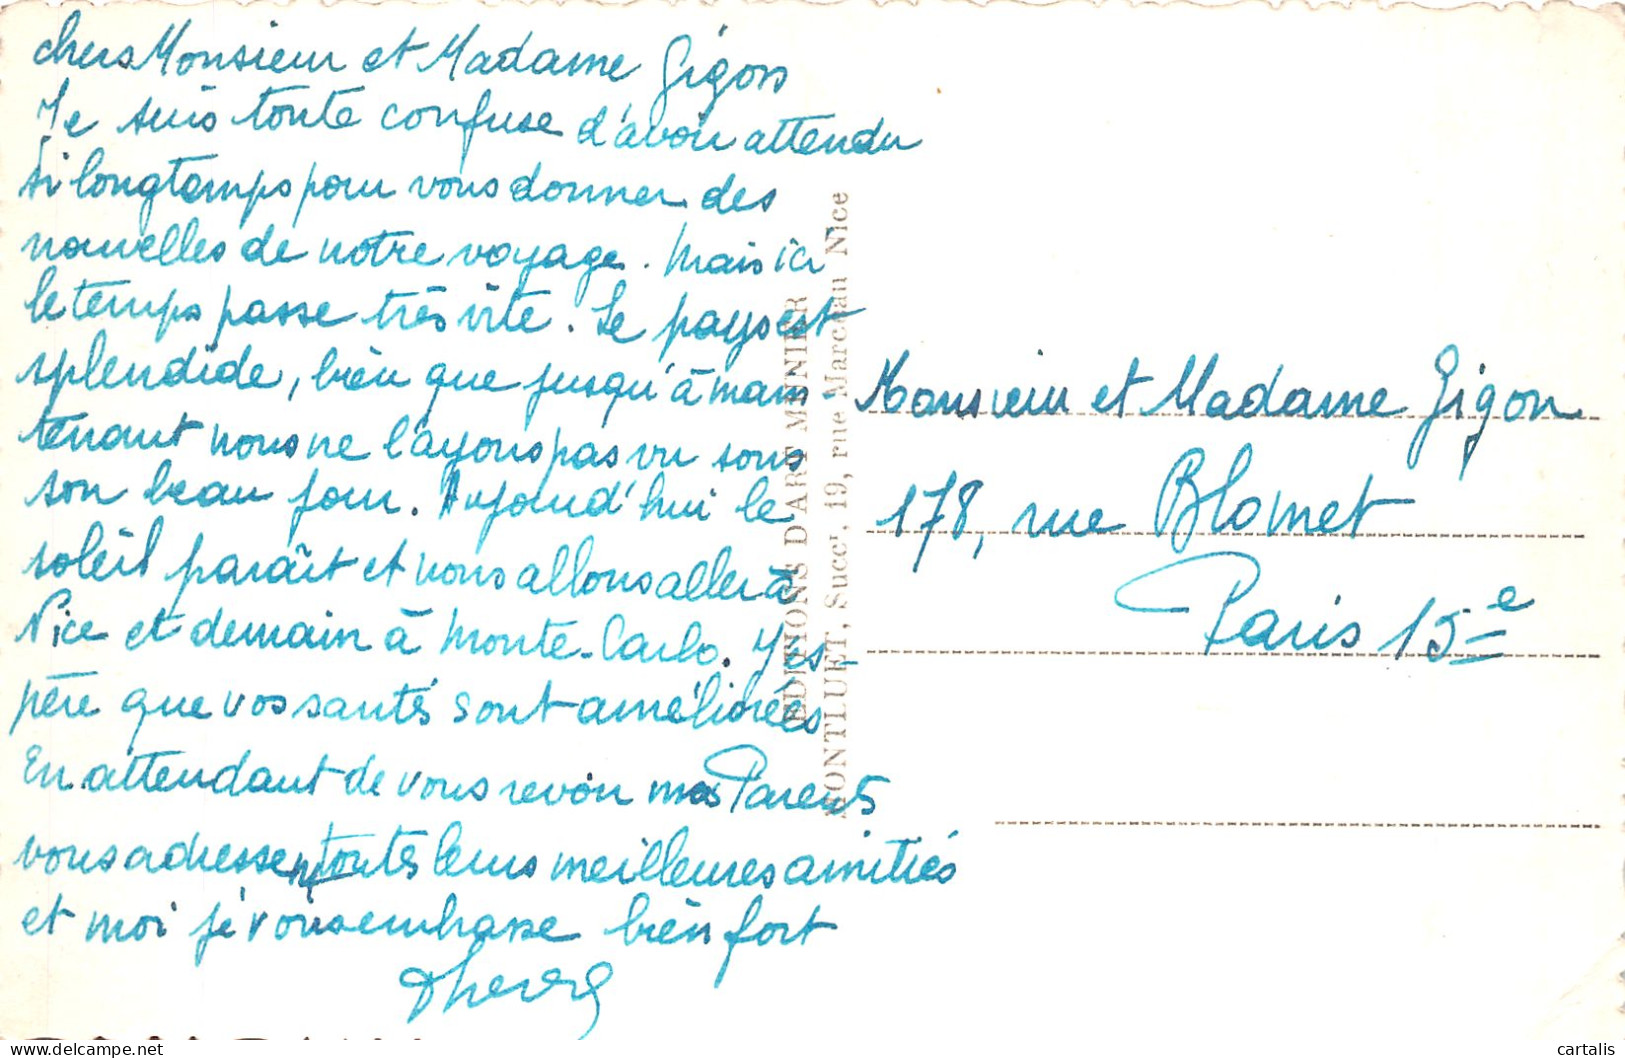 chers Monsieur et Madame Gigon
Je suis toute confuse d'avoir attendu
si longtemps pour vous donner des
nouvelles de notre voyage. Mais ici
le temps passe très vite. Le pays est
splendide, bien que jusqu'à main-
tenant nous ne l'ayons pas vu sous
son beau jour. Aujourd'hui le
soleil paraît et nous allons aller à
Nice et demain à Monte-Carlo. J'es-
père que vos santés sont améliorées
En attendant de vous revoir mes Parents
vous adressent toutes leurs meilleures amitiés
et moi je vous embrasse bien fort
EDITIONS D'ART MUNIER
MONTLUET, Succr, 19, rue Marceau Nice
Monsieur et Madame Gigon
178, rue Blomet
Paris 15e
cartalis
delcampe.net